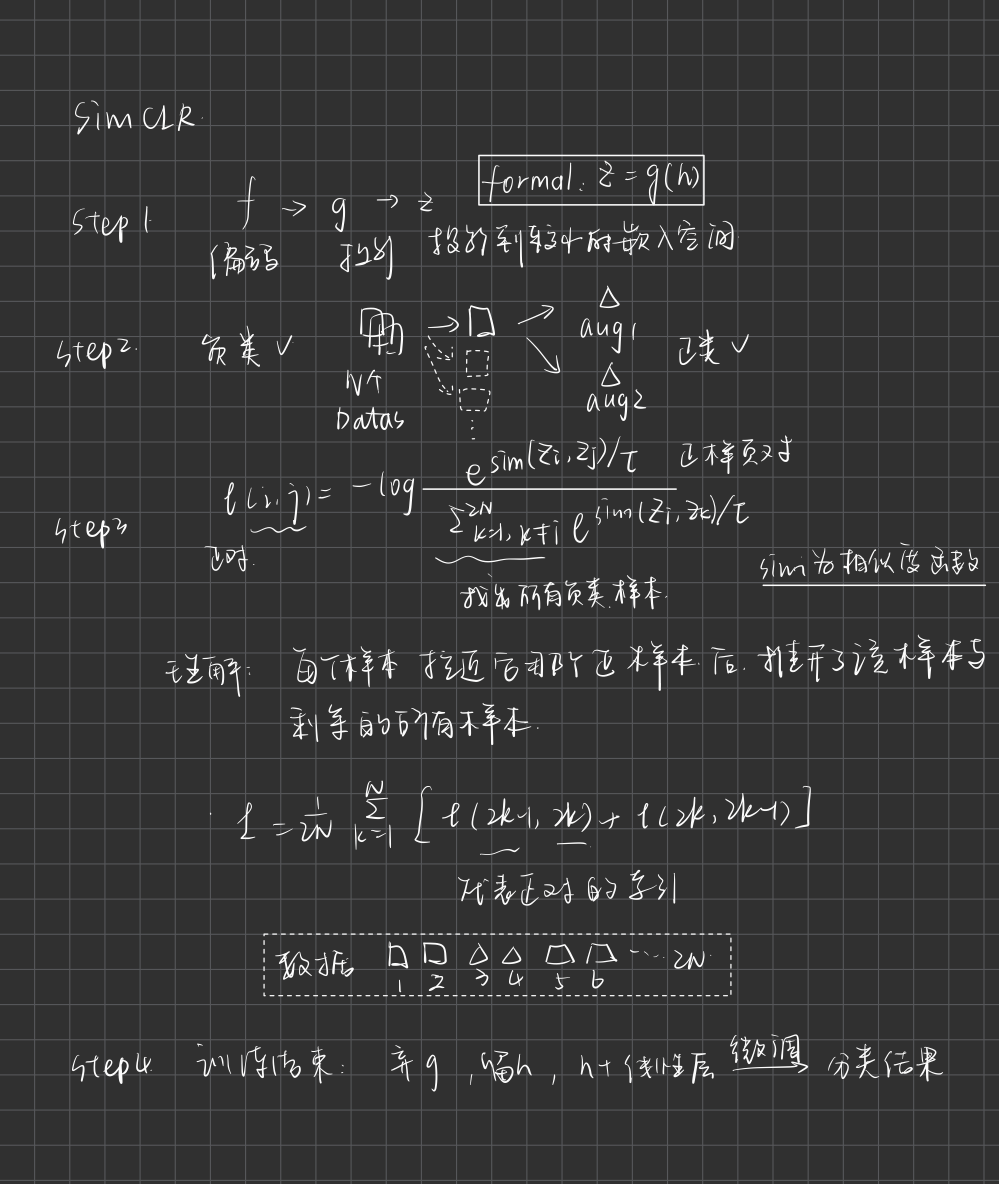 SimCLR.
Step 1 f → g → z formal: z = g(h)
编码 投影 投影到较小的嵌入空间
Step2. 负类 ✓ N个 Datas aug1 aug2 正类 ✓
Step3 l(i,j) = -log e^{sim(zi,zj)/τ} / Σ_{k=1,k≠i}^{2N} e^{sim(zi,zk)/τ} 正样本对
正对.
找出所有负类样本.
sim为相似度函数
理解: 每个样本 拉近它那个正样本后. 推开了该样本与
剩余的所有样本.
L = 1/2N Σ_{k=1}^{N} [l(2k-1, 2k) + l(2k, 2k-1)]
代表正对的索引
数据 □ □ △ △ □ □ ···· 2N
1 2 3 4 5 6
Step4. 训练结束: 弃g, 留h, h+线性层 微调→ 分类结果